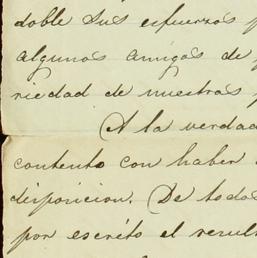 doble sus esfuerzos p
algunos amigos de p
riedad de nuestras p
A la verdad
contento con haber
disposicion. De todos
por escrito el resul